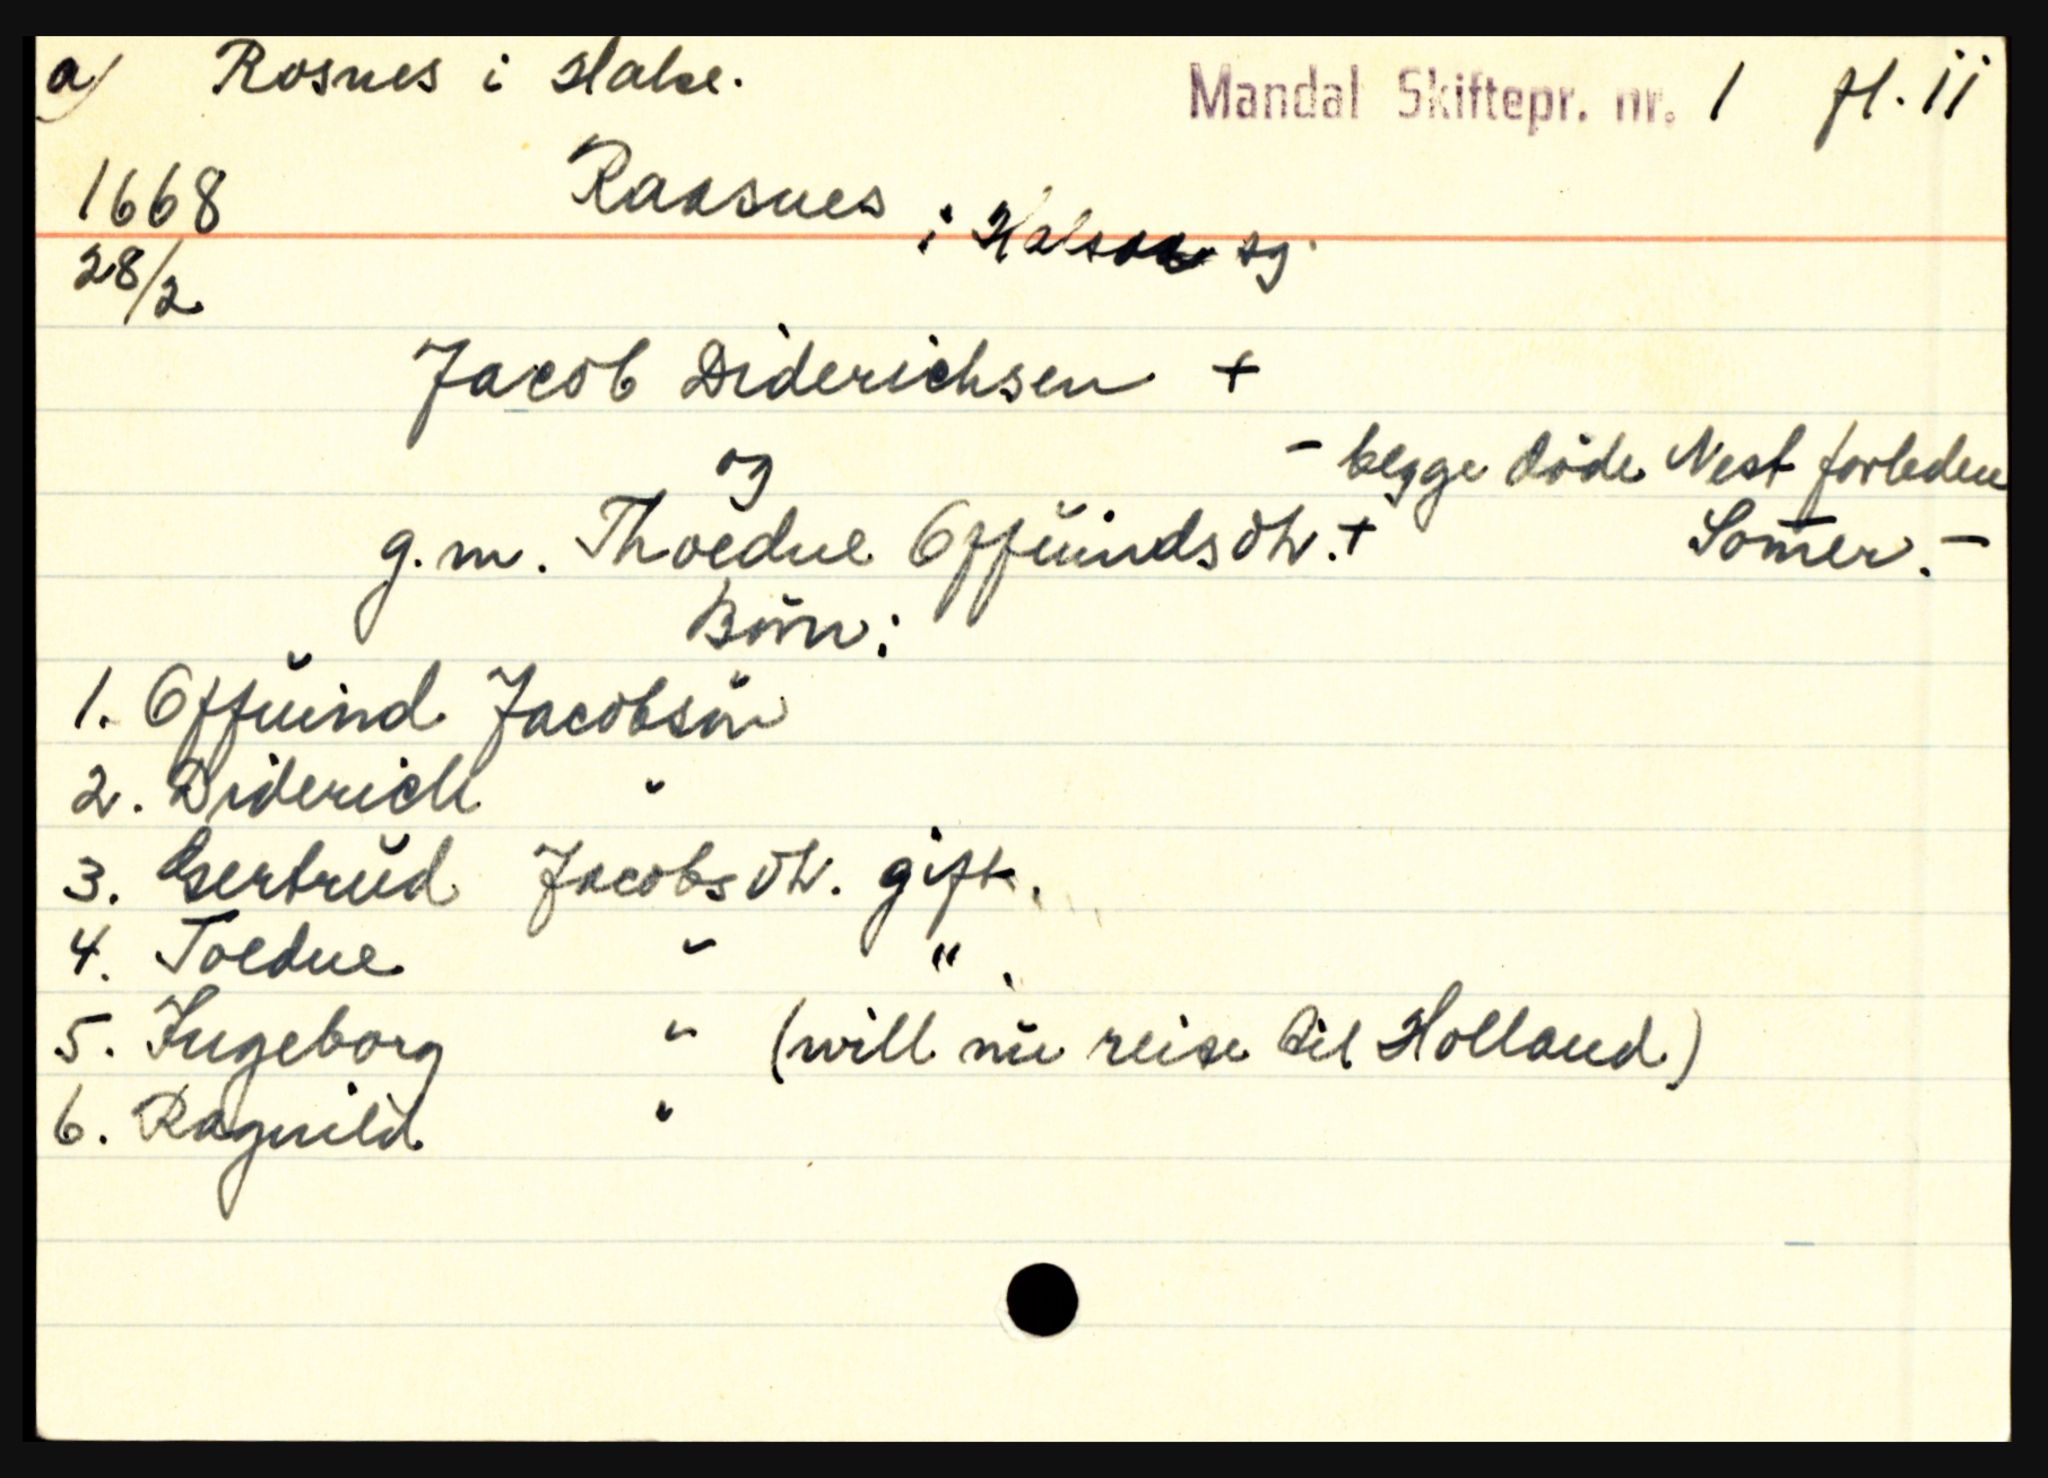 a) Rosnes i Halse. Mandal Skiftepr. nr. 1 fl. 11
1668 Raasnes i Halsaa sg.
28/2
Jacob Diderichsen +
og - begge döde Nest forleden
g.m. Thoedne Offŭindsdtr. + Som̄er. -
Börn:
1. Offŭind Jacobsön
2. Diderich "
3. Gertrŭd Jacobsdtr. gift.
4. Toedne " " .
5. Ingeborg " (will nŭ reise til Holland)
6. Ragnild "